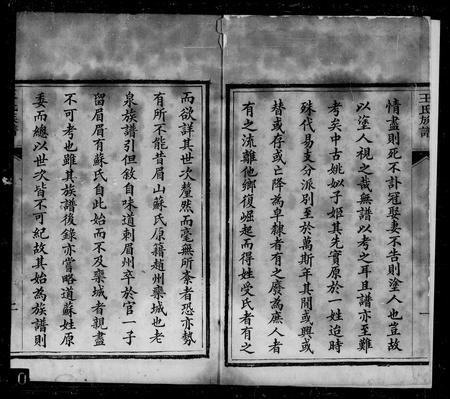 王氏族譜
情盡則死不訃冠娶妻不告則塗人也豈故
以塗人視之哉無譜以考之耳且譜亦至難
者矣中古姚姒子姬其先實原於一姓迨時
殊代易支分派別至於萬斯年其間或興或
替或存或亡降為皁隸者有之廢為庶人者
有之流離他鄉復崛起而得姓受氏者有之
一
而欲詳其世次釐然而毫無所紊者恐亦勢
有所不能昔眉山蘇氏原籍趙州欒城也老
泉族譜引但敘自味道刺眉州卒於官一子
留眉眉有蘇氏自此始而不及欒城者親盡
不可考也雖其族譜後錄亦嘗略道蘇姓原
委而總以世次皆不可紀故其始為族譜則
族譜
0